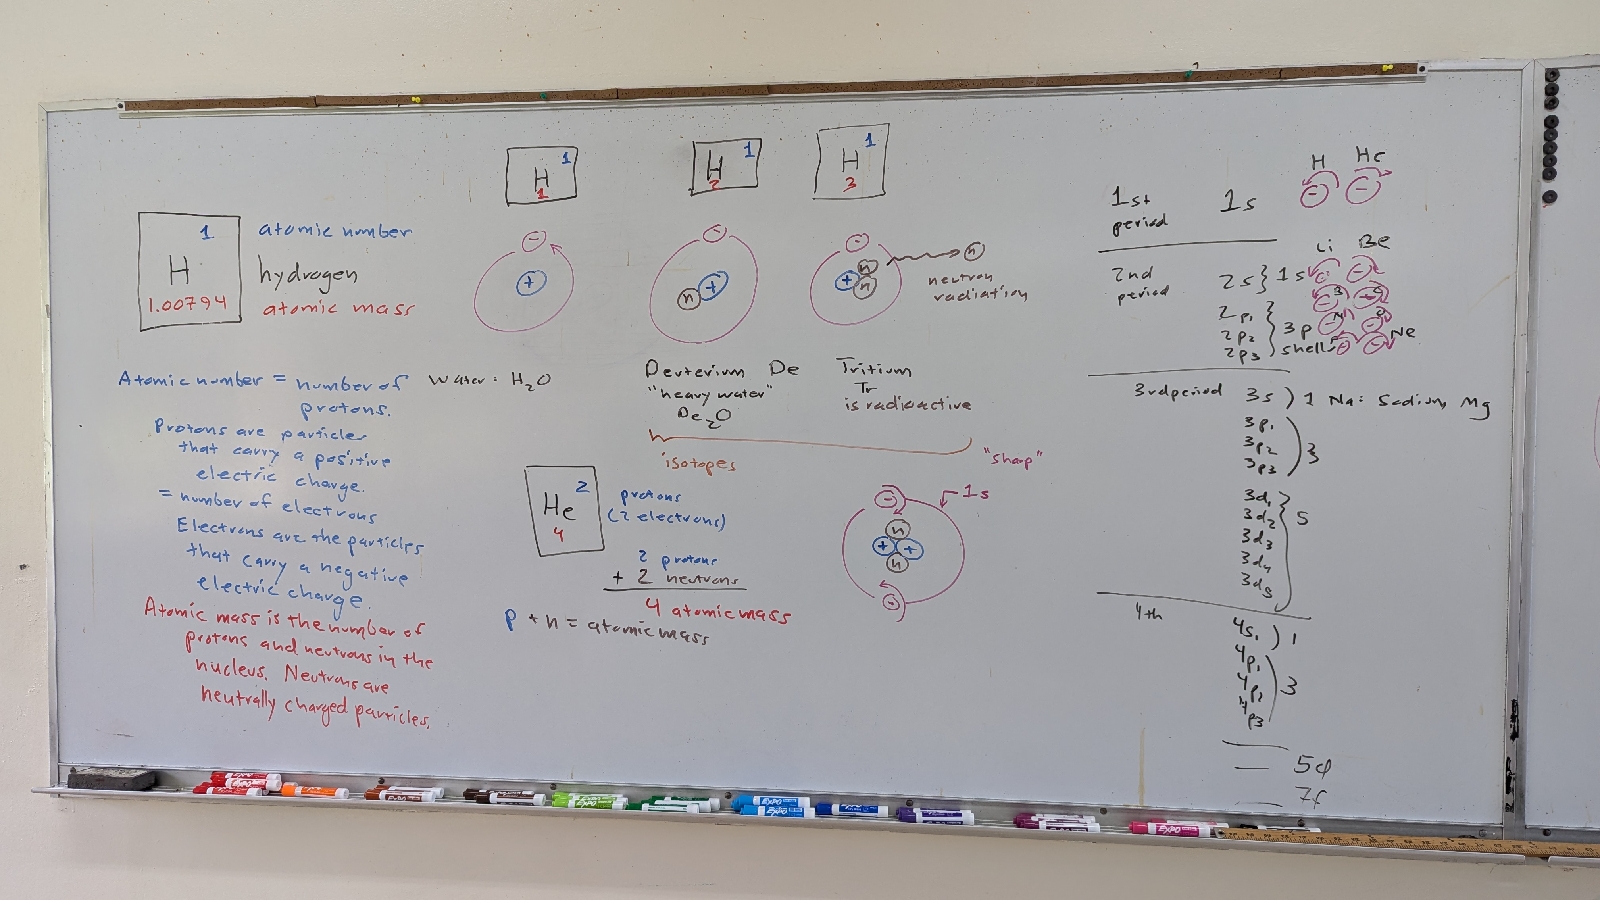 1
H
1.00794
atomic number
hydrogen
atomic mass
Atomic number = number of
protons.
Protons are particles
that carry a positive
electric charge.
= number of electrons
Electrons are the particles
that carry a negative
electric charge.
Atomic mass is the number of
protons and neutrons in the
nucleus. Neutrons are
neutrally charged particles.
1
H
1
-
+
Water: H2O
1
H
2
-
n +
Deuterium De
"heavy water"
De2O
1
H
3
-
n
+
n
n
neutron
radiation
Tritium
Tr
is radioactive
isotopes
2
He
4
protons
(2 electrons)
2 protons
+ 2 neutrons
4 atomic mass
p + n = atomic mass
"sharp"
1s
-
n
+ +
n
-
H He
1st
period
1s
- -
Li Be
2nd
period
2s } 1s
2p1
2p2
2p3
3p
shells
Ne
3rd period 3s ) 1 Na: Sodium, Mg
3p1
3p2
3p3
3
3d1
3d2
3d3
3d4
3d5
5
4th
4s1 ) 1
4p1
4p2
4p3
3
5d
7f
EXPO
EXPO
EXPO
EXPO
EXPO